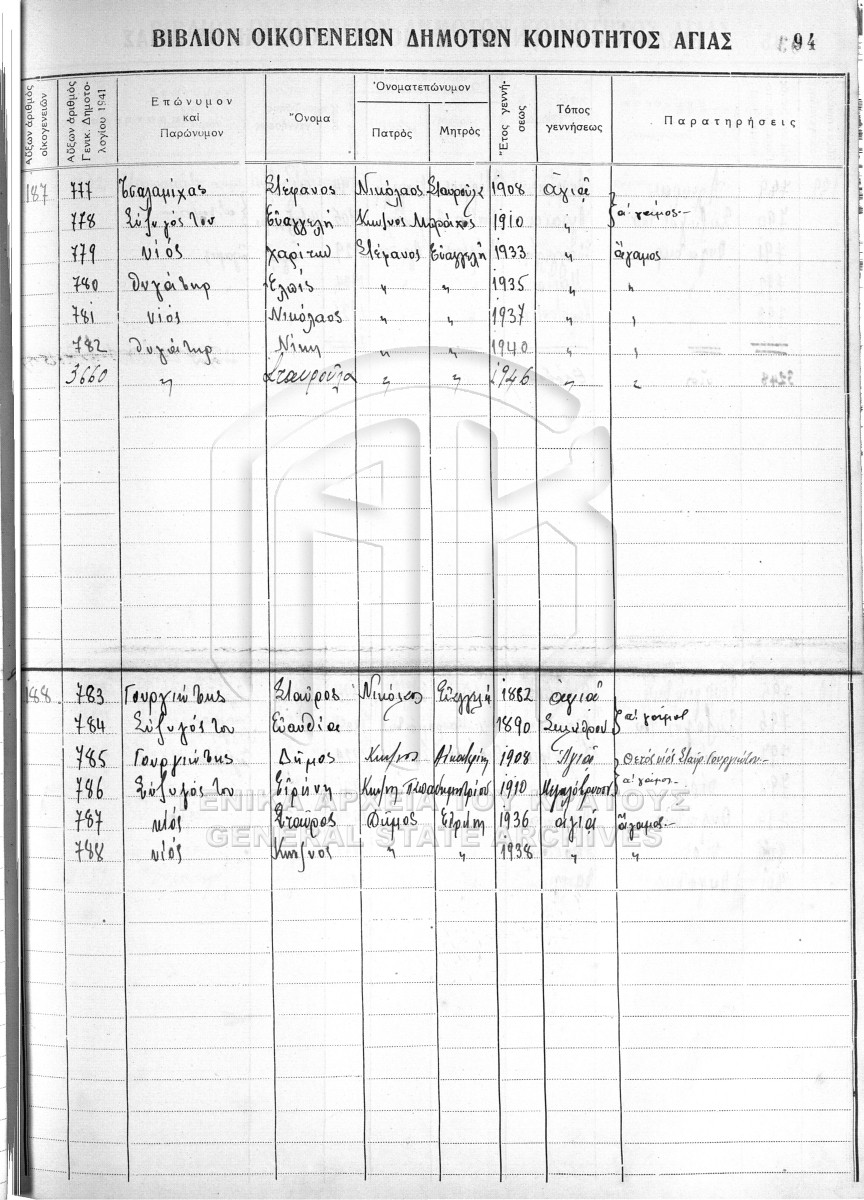 ΒΙΒΛΙΟΝ ΟΙΚΟΓΕΝΕΙΩΝ ΔΗΜΟΤΩΝ ΚΟΙΝΟΤΗΤΟΣ ΑΓΙΑΣ 94
Αὔξων ἀριθμὸς οἰκογενειῶν
Αὔξων ἀριθμὸς Γενικ. Δημοτολογίου 1941
Ἐπώνυμον καὶ Παρώνυμον
Ὄνομα
Ὀνοματεπώνυμον
Πατρὸς Μητρὸς
Ἔτος γεννήσεως
Τόπος γεννήσεως
Παρατηρήσεις
187 777 Τσαλαμίχας Στέφανος Νικόλαος Σταυρούλα 1908 Ἁγιᾶ
778 Σύζυγός του Εὐαγγελή Κων/νος 1910 " α' γάμος
779 υἱός Χαρίτων Στέφανος Εὐαγγελή 1933 " ἄγαμος
780 θυγάτηρ Ἐλπίς " " 1935 " "
781 υἱός Νικόλαος " " 1937 " "
782 θυγάτηρ Νίκη " " 1940 " "
3660 " Σταυρούλα " " 1946 " "
188 783 Γουργιώτης Σταῦρος Νικόλαος 1882 ἁγιᾶ
784 Σύζυγός του Εὐανθία 1890 α' γάμος
785 Γουργιώτης Δῆμος Κων/νος Αἰκατερίνη 1908 Ἁγιᾶ θετὸς υἱός Σταύρ. Γουργιώτου
786 Σύζυγός του Εἰρήνη Κων/ν Παπαδημητρίου 1910 Μεγαλόβρυσον α' γάμος
787 υἱός Σταῦρος Δῆμος Εἰρήνη 1936 ἁγιᾶ ἄγαμος
788 υἱός Κων/νος " " 1938 " "
ΓΕΝΙΚΑ ΑΡΧΕΙΑ ΤΟΥ ΚΡΑΤΟΥΣ
GENERAL STATE ARCHIVES